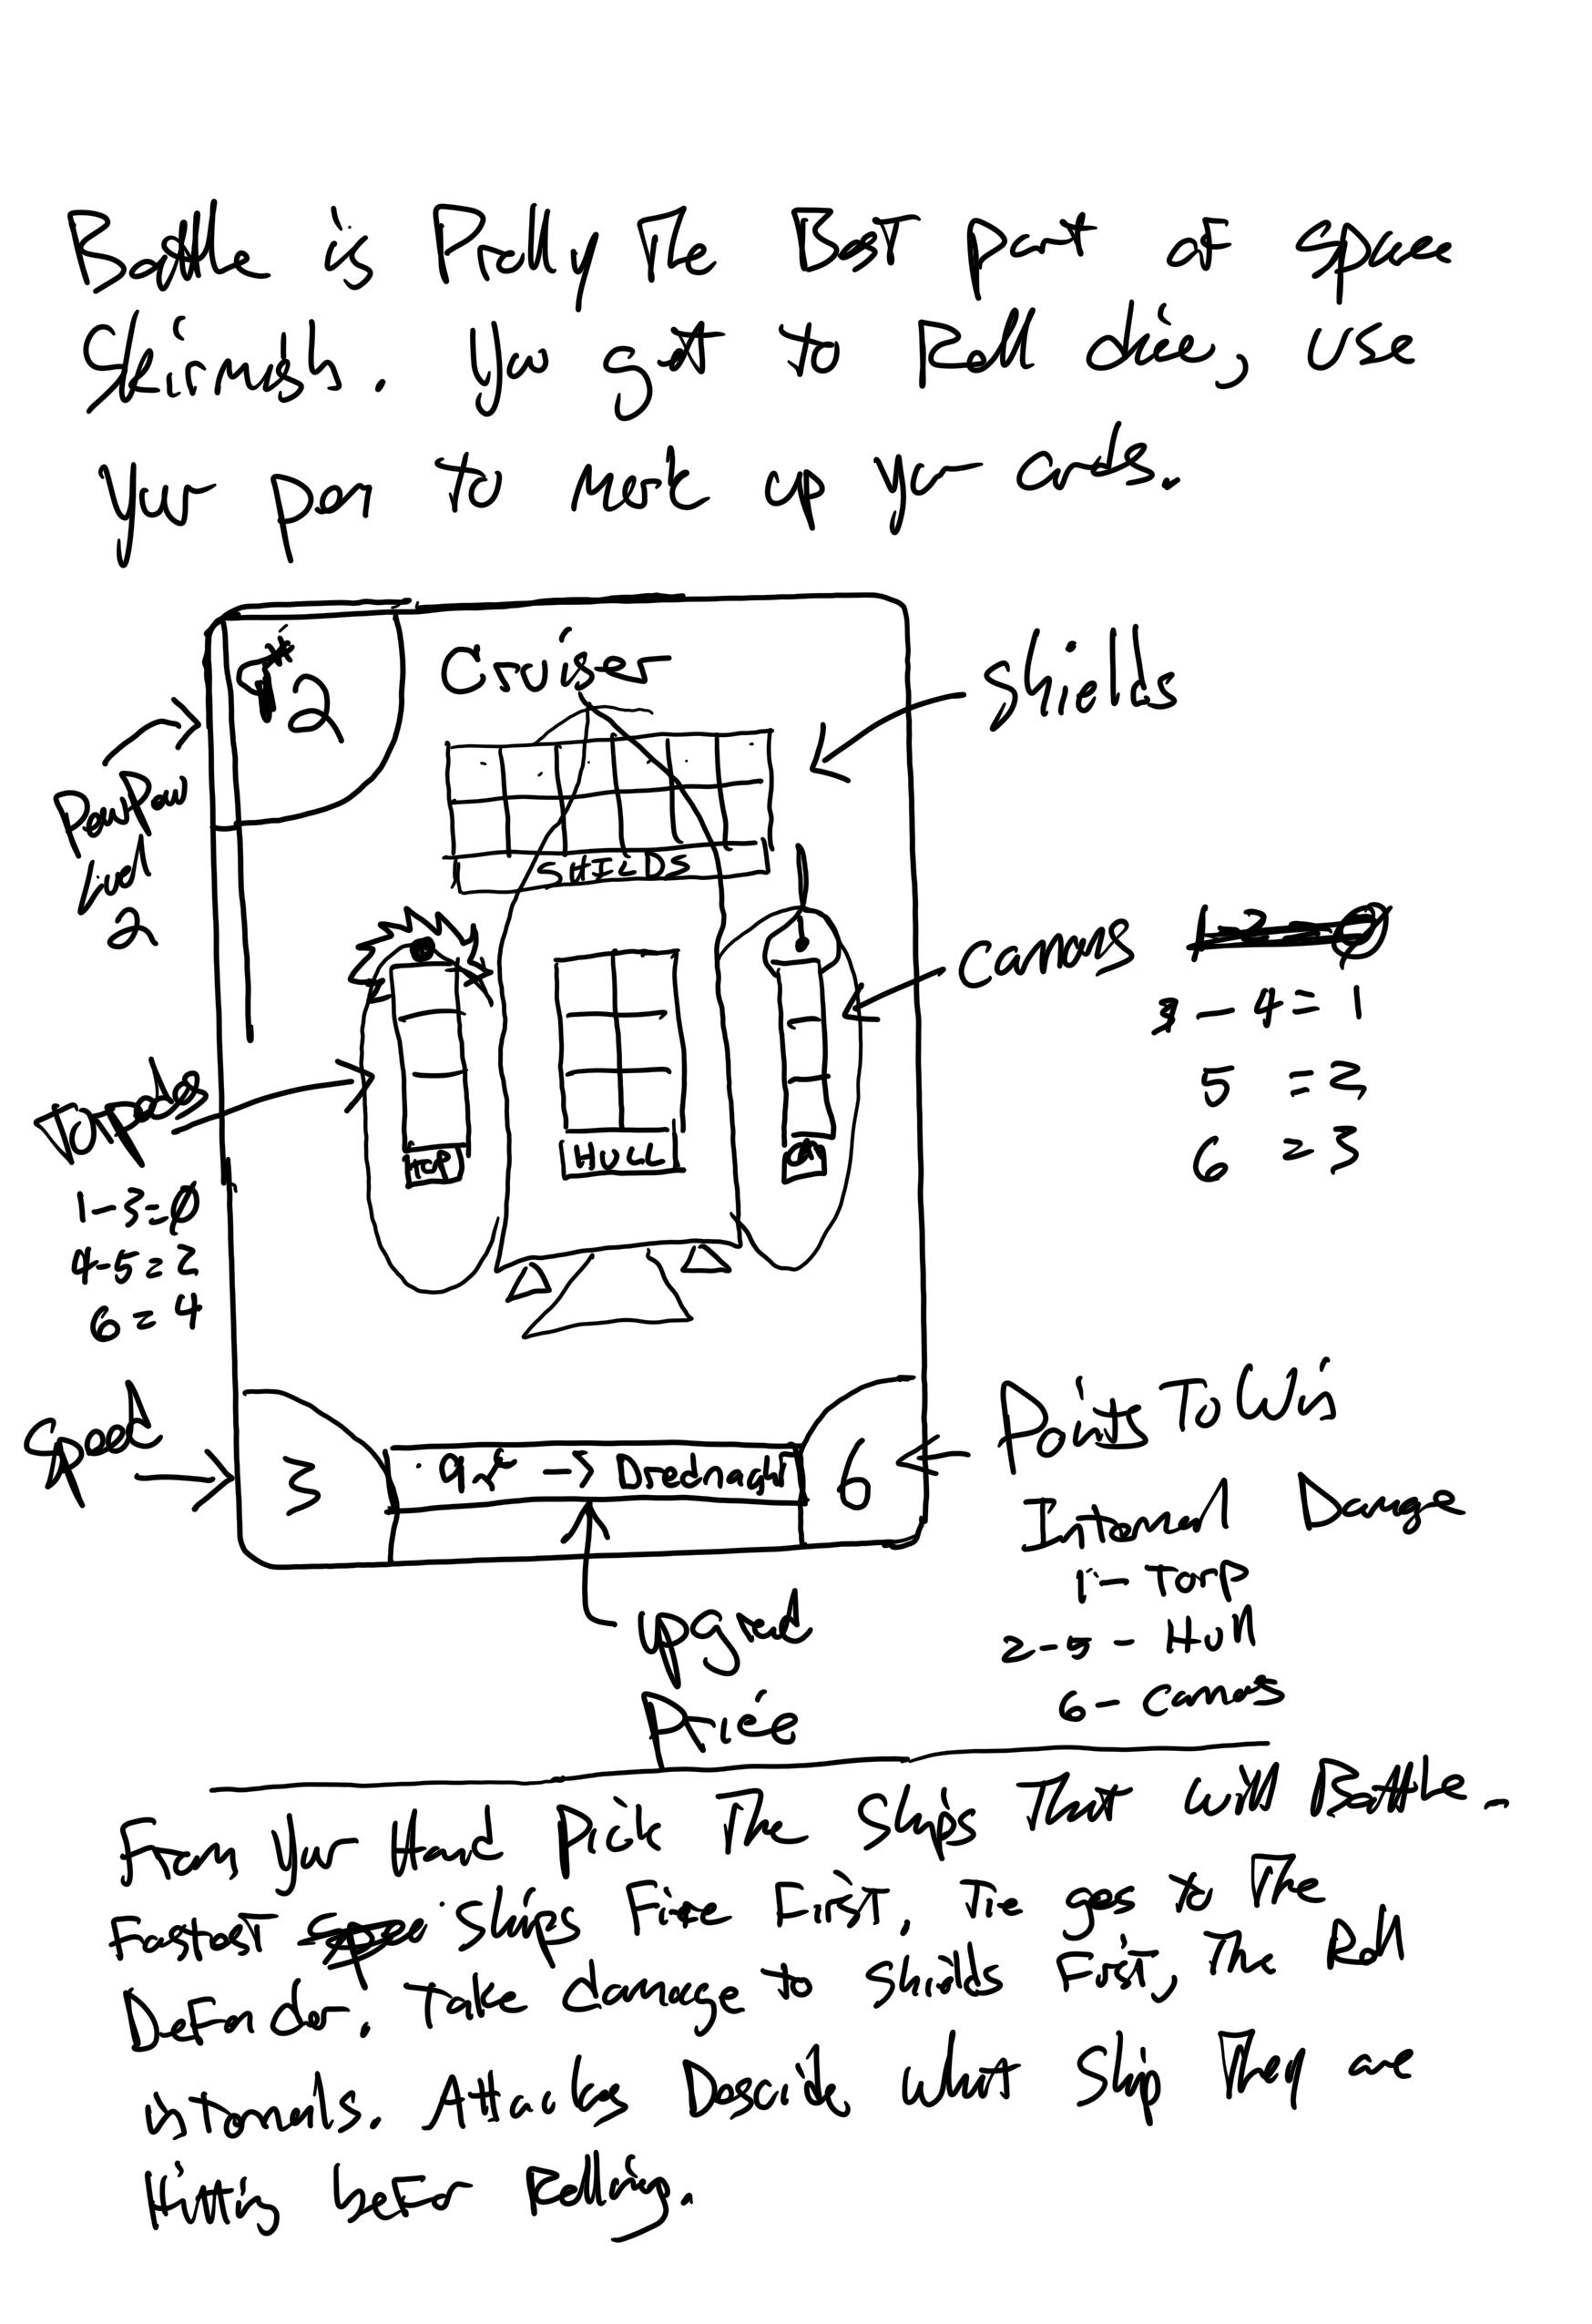 Battle is Prolly The Best part of space
Skirmish. You get to Roll dice, use
your pen to mark up your cards.
2
Cruiser
Shields
Level
2
SHIELDS
Cannons
3-4=1
5 =2
6 =3
Torpedoes
1-3=0
4-5=2
6=4
TORP
HULL
Speed
3
-> Drednaght
6
Points To Win
Internal Damage
1- Torp
2-5- Hull
6- Cannons
upgrad
Price
From Your Hand Pick The Ships That will Battle.
Fastest Ships Fire First. Tie goes to The
Defender. Take damage to shilds First, The Roll
internals. Attackes Descide what Ship They are
Hitting befor Rolling.